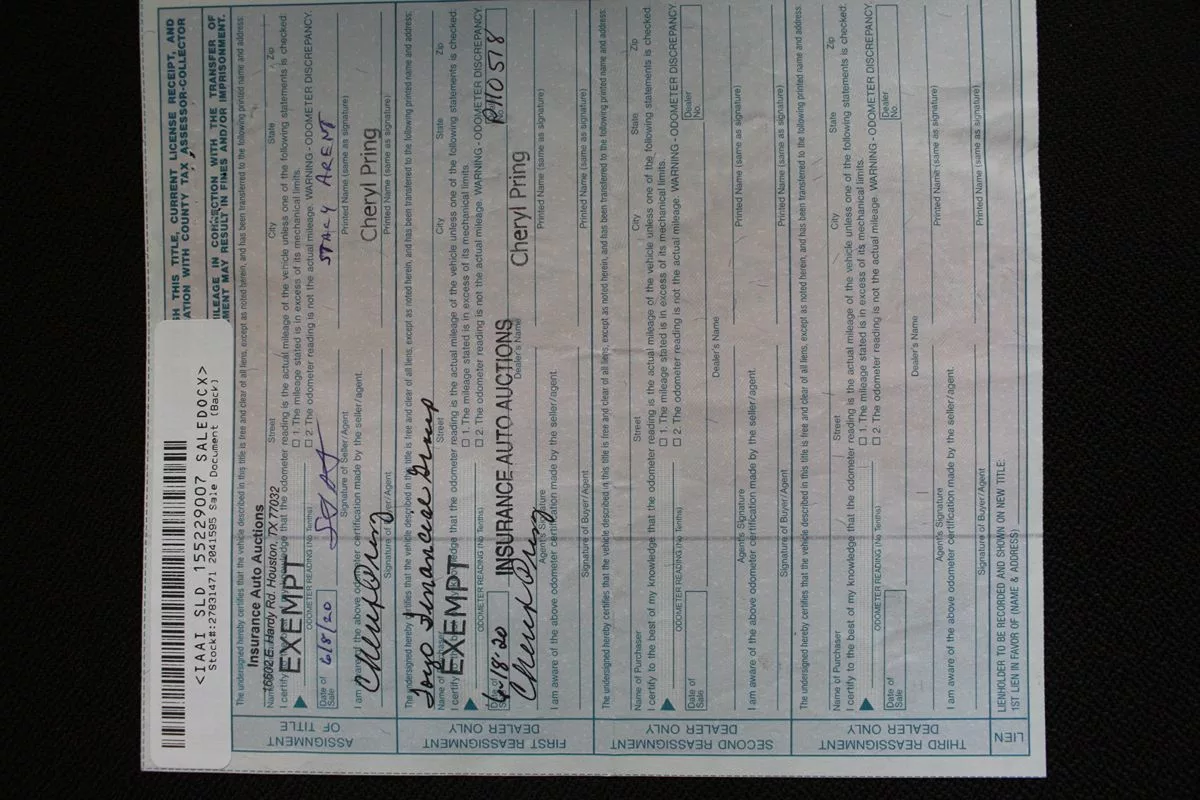 <IAAI SLD 155229007 SALEDOCX>
Stock#:27831471 2041595 Sale Document (Back)
THIS TITLE, CURRENT LICENSE RECEIPT, AND
ATION WITH COUNTY TAX ASSESSOR-COLLECTOR
ILEAGE IN CONNECTION WITH THE TRANSFER OF
MENT MAY RESULT IN FINES AND/OR IMPRISONMENT.
ASSIGNMENT OF TITLE
The undersigned hereby certifies that the vehicle described in this title is free and clear of all liens, except as noted herein, and has been transferred to the following printed name and address:
Insurance Auto Auctions
16602 E. Hardy Rd. Houston, TX 77032
Street City State Zip
I certify to the best of my knowledge that the odometer reading is the actual mileage of the vehicle unless one of the following statements is checked:
EXEMPT
ODOMETER READING (No Tenths)
☐ 1. The mileage stated is in excess of its mechanical limits.
☐ 2. The odometer reading is not the actual mileage. WARNING - ODOMETER DISCREPANCY.
Date of Sale 6/8/20 STACY ARENT
Signature of Seller/Agent Printed Name (same as signature)
I am aware of the above odometer certification made by the seller/agent.
Cheryl Pring Cheryl Pring
Signature of Buyer/Agent Printed Name (same as signature)
FIRST REASSIGNMENT DEALER ONLY
The undersigned hereby certifies that the vehicle described in this title is free and clear of all liens, except as noted herein, and has been transferred to the following printed name and address:
Toryo Financial Group
Name of Purchaser Street City State Zip
I certify to the best of my knowledge that the odometer reading is the actual mileage of the vehicle unless one of the following statements is checked:
EXEMPT
ODOMETER READING (No Tenths)
☐ 1. The mileage stated is in excess of its mechanical limits.
☐ 2. The odometer reading is not the actual mileage. WARNING - ODOMETER DISCREPANCY
Date of Sale 6-18-20 INSURANCE AUTO AUCTIONS P110578
Dealer's Name
Cheryl Pring Cheryl Pring
Agent's Signature Printed Name (same as signature)
I am aware of the above odometer certification made by the seller/agent.
Signature of Buyer/Agent Printed Name (same as signature)
SECOND REASSIGNMENT DEALER ONLY
The undersigned hereby certifies that the vehicle described in this title is free and clear of all liens, except as noted herein, and has been transferred to the following printed name and address:
Name of Purchaser Street City State Zip
I certify to the best of my knowledge that the odometer reading is the actual mileage of the vehicle unless one of the following statements is checked:
ODOMETER READING (No Tenths)
☐ 1. The mileage stated is in excess of its mechanical limits.
☐ 2. The odometer reading is not the actual mileage. WARNING - ODOMETER DISCREPANCY.
Date of Sale Dealer's Name Dealer No.
Agent's Signature Printed Name (same as signature)
I am aware of the above odometer certification made by the seller/agent.
Signature of Buyer/Agent Printed Name (same as signature)
THIRD REASSIGNMENT DEALER ONLY
The undersigned hereby certifies that the vehicle described in this title is free and clear of all liens, except as noted herein, and has been transferred to the following printed name and address:
Name of Purchaser Street City State Zip
I certify to the best of my knowledge that the odometer reading is the actual mileage of the vehicle unless one of the following statements is checked:
ODOMETER READING (No Tenths)
☐ 1. The mileage stated is in excess of its mechanical limits.
☐ 2. The odometer reading is not the actual mileage. WARNING - ODOMETER DISCREPANCY
Date of Sale Dealer's Name Dealer No.
Agent's Signature Printed Name (same as signature)
I am aware of the above odometer certification made by the seller/agent.
Signature of Buyer/Agent Printed Name (same as signature)
LIEN
LIENHOLDER TO BE RECORDED AND SHOWN ON NEW TITLE:
1ST LIEN IN FAVOR OF (NAME & ADDRESS)